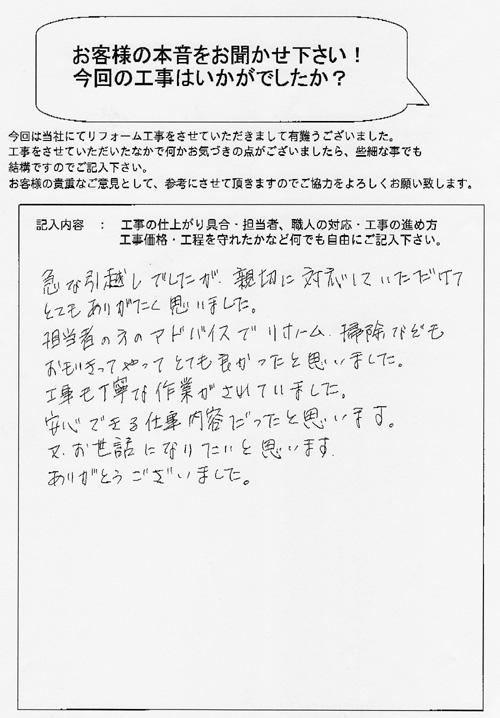 お客様の本音をお聞かせ下さい！
今回の工事はいかがでしたか？
今回は当社にてリフォーム工事をさせていただきまして有難うございました。
工事をさせていただいたなかで何かお気づきの点がございましたら、些細な事でも
結構ですのでご記入下さい。
お客様の貴重なご意見として、参考にさせて頂きますのでご協力をよろしくお願い致します。
記入内容 ： 工事の仕上がり具合・担当者、職人の対応・工事の進め方
工事価格・工程を守れたかなど何でも自由にご記入下さい。
急な引越しでしたが、親切に対応していただけて
とてもありがたく思いました。
担当者の方のアドバイスでリホーム、掃除なども
おもいきってやってとても良かったと思いました。
工事も丁寧な作業がされていました。
安心できる仕事内容だったと思います。
又、お世話になりたいと思います。
ありがとうございました。